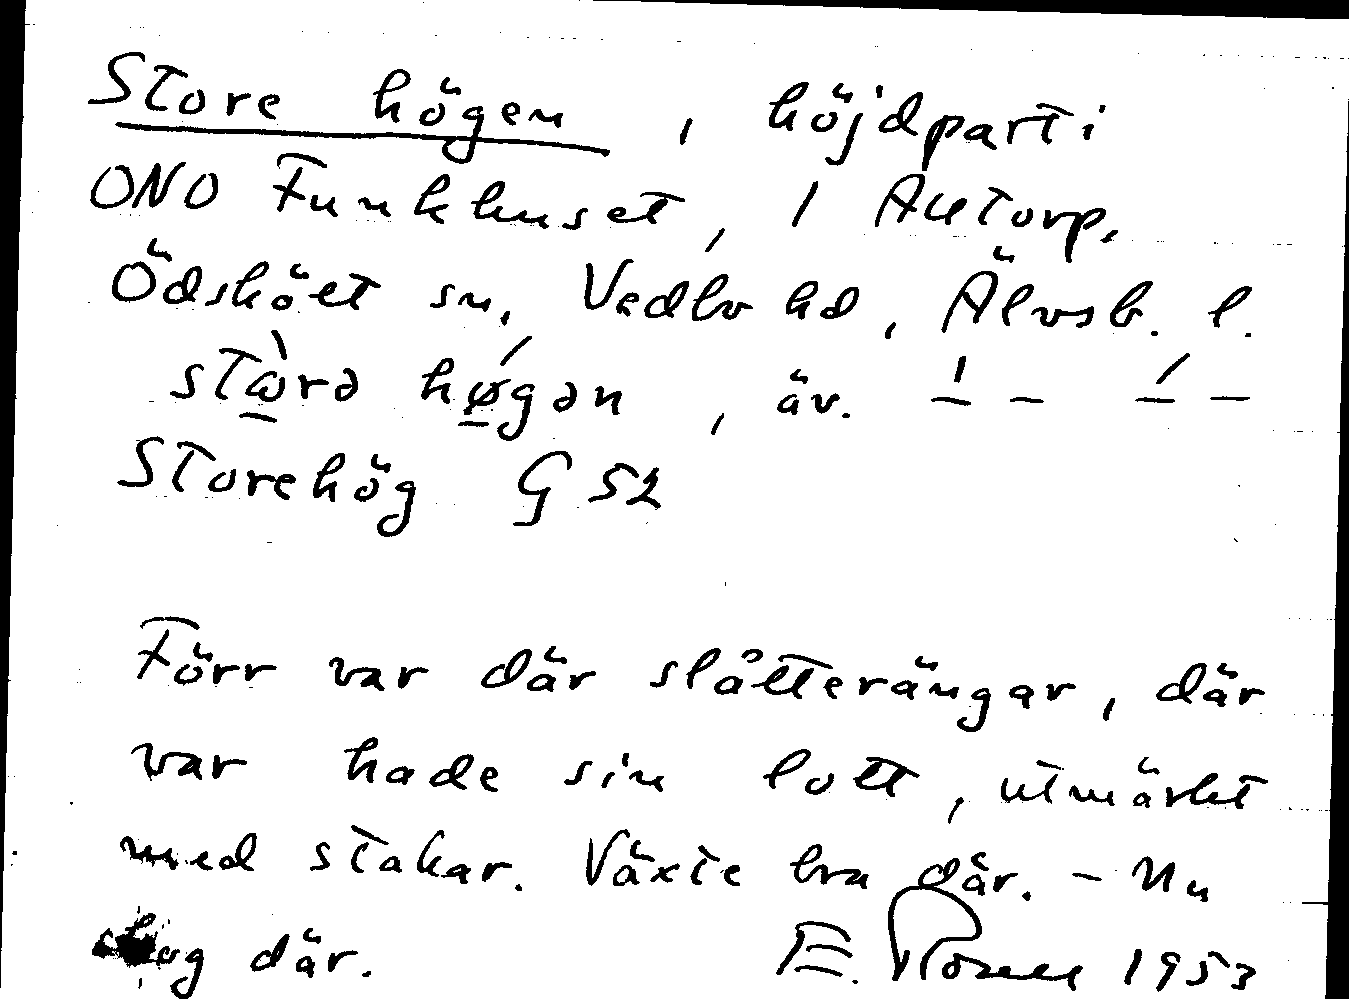 Store högen, höjdparti
ONO Funkhuset, 1 Actorp,
Ödsköet sn, Vedbo hd, Älvsb. l.
storə høgən, äv. – – – –
Storehög G 52
Förr var där slåtterängar, där
var hade sin lott, utmärkt
med stakar. Växte bra där. – Nu
skog där. E. 1953